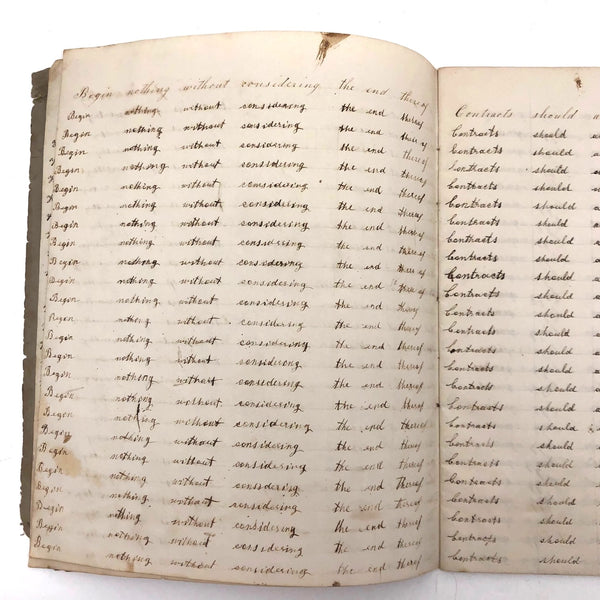 Begin nothing without considering the end thereof
Begin nothing without considering the end thereof
Begin nothing without considering the end thereof
Begin nothing without considering the end thereof
Begin nothing without considering the end thereof
Begin nothing without considering the end thereof
Begin nothing without considering the end thereof
Begin nothing without considering the end thereof
Begin nothing without considering the end thereof
Begin nothing without considering the end thereof
Begin nothing without considering the end thereof
Begin nothing without considering the end thereof
Begin nothing without considering the end thereof
Begin nothing without considering the end thereof
Begin nothing without considering the end thereof
Begin nothing without considering the end thereof
Begin nothing without considering the end thereof
Begin nothing without considering the end thereof
Begin nothing without considering the end thereof
Begin nothing without considering the end thereof
Begin nothing without considering the end thereof
Begin nothing without considering the end thereof
Begin nothing without considering the end thereof
Begin nothing without considering the end thereof
Begin nothing without considering the end thereof
Contracts should
Contracts should
Contracts should
Contracts should
Contracts should
Contracts should
Contracts should
Contracts should
Contracts should
Contracts should
Contracts should
Contracts should
Contracts should
Contracts should
Contracts should
Contracts should
Contracts should
Contracts should
Contracts should
Contracts should
Contracts should
Contracts should
Contracts should
Contracts should
Contracts should